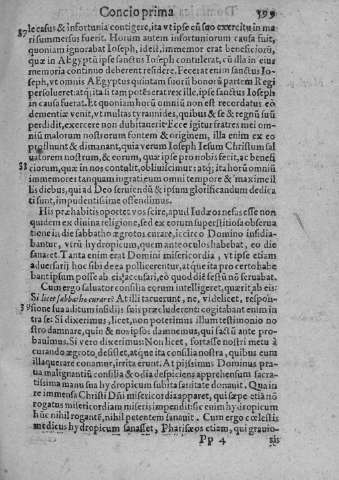 Concio prima 599
le casus & infortunia contigere, ita vt ipse cū suo exercitu in ma
ri summersus fuerit. Horum autem infortuniorum causa fuit,
quoniam ignorabat Ioseph, id est, immemor erat beneficiorū,
quæ in Aegypto ipse sanctus Ioseph contulerat, cū illa in eius
memoria continuo deberent residere. Fecerat enim sanctus Io-
seph, vt omnis Aegyptus quintam suorū bonorū partem Regi
persolueret: atq́; ita li tam potēs erat rex ille, ipse sanctus Ioseph
in causa fuerat. Et quoniam horū omniū non est recordatus eō
dementiæ venit, vt multas tyrannides, quibus & se & regnū suū
perdidit, exercere non dubitauerit. Ecce igitur fratres mei om-
niū malorum nostrorum fontem & originem, illa enim ex eo
profluunt & dimanant, quia verum Ioseph Iesum Christum sal
uatorem nostrum, & eorum, quæ ipse pro nobis fecit, ac benefi
38 ciorum, quæ in nos contulit, obliuiscimur: atq́; ita horū omniū
immemores tanquam ingrati eum omni tempore & maxime il
lis diebus, qui ad Deo seruiendū & ipsum glorificandum dedica
ti sunt, impudentissime offendimus.
His præhabitis oportet vos scire, apud Iudæos nefas esse non
quidem ex diuina religione, sed ex eorum superstitiosa obserua
tione in die sabbatho ægrotos curare, iccirco Domino insidia-
bantur, virū hydropicum, quem ante oculos habebat, eo die
sanaret. Tanta enim erat Domini misericordia, vt ipse etiam
aduersarij hoc sibi de ea pollicerentur, atque ita pro certo habe
bant ipsum posse ab eis accusari, eō quod die festū nō seruabat.
Cum ergo saluator consilia eorum intelligeret, quærit ab eis:
Si licet sabbatho curare? At illi tacuerunt, ne, videlicet, respon-
39 sione sua aditum insidijs suis præcluderent: cogitabant enim in
tra se: Si dixerimus, licet, non poterimus illum testimonio no
stro damnare, quin & nos ipsos damnemus, qui factū ante proba
bauimus. Si vero dixerimus Non licet, fortasse nostri metu à
curando ægroto, desistet, atque ita consilia nostra, quibus eum
illaquerare conamur, irrita erunt. At pijssimus Dominus pra-
ua malignantiū consilia & odia despiciens apprehensum sacra-
tissima manu sua hydropicum subita sanitate donauit. Qua in
re immensa Christi Dñi misericordia apparet, qui sæpe etiā nō
rogatus misericordiam miseris impendit: sic enim hydropicum
huc nihil rogantē, nihil petentem sanauit. Cum ergo cœlestis
medicus hydropicum sanasset, Pharisæos etiam, qui grauio-
Pp 4 ris